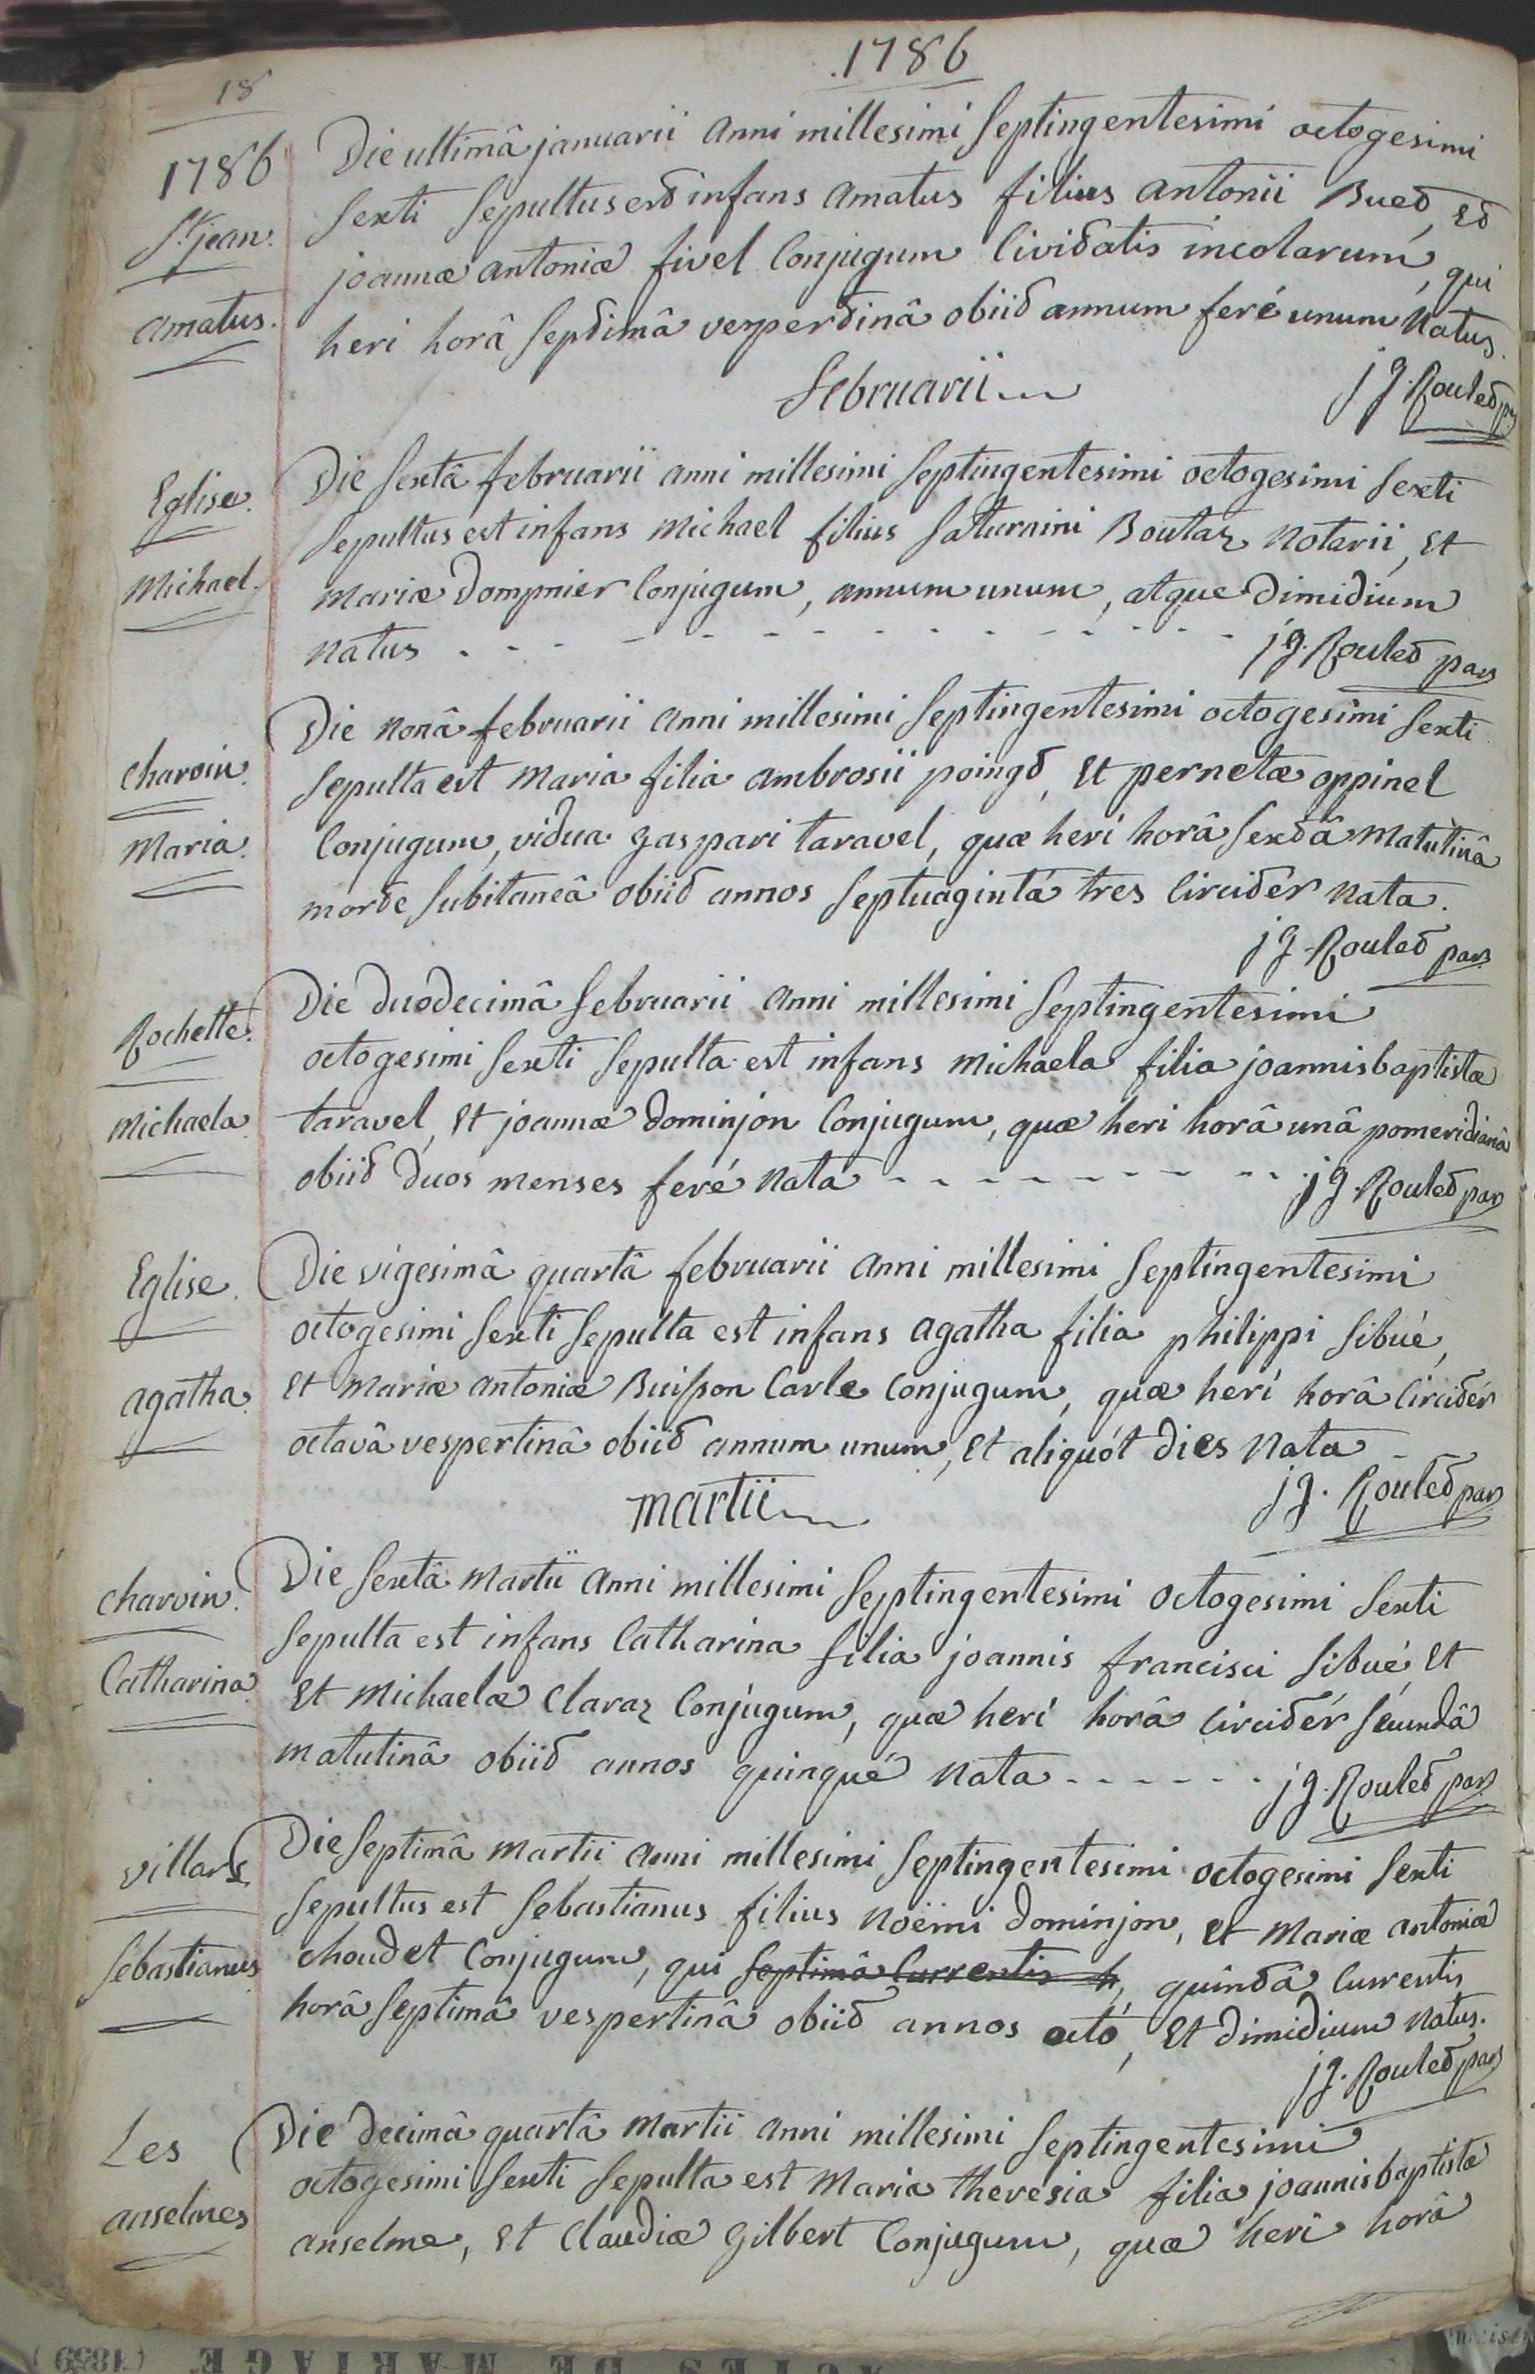 1786
18
1786
St jean.
amatus.
Die ultimâ januarii anni millesimi septingentesimi octogesimi
sexti sepultus est infans amatus filius antonii Buet, et
joannæ antoniæ fivel Conjugum Civitatis incolarum, qui
heri horâ septimâ vespertinâ obiit annum feré unum natus.
jg. Roulet
februarii
Eglise.
Michael.
Die sextâ februarii anni millesimi septingentesimi octogesimi sexti
sepultus est infans Michael filius saturnini Boutaz Notarii, et
Mariæ Dompnier Conjugum, annum unum, atque dimidium
natus - - - - - - - - - - - - jg. Roulet par
charvin.
Maria.
Die nonâ februarii anni millesimi septingentesimi octogesimi sexti
sepulta est Maria filia ambrosii poingt, et pernetæ oppinel
Conjugum, vidua gaspari taravel, quæ heri horâ sextâ matutinâ
morte subitaneâ obiit annos septuagintá tres Circitér nata.
jg. Roulet par
Rochette.
Michaela.
Die duodecimâ februarii anni millesimi septingentesimi
octogesimi sexti sepulta est infans Michaela filia joannisbaptistæ
taravel, et joannæ dominjon Conjugum, quæ heri horâ unâ pomeridianâ
obiit duos menses feré nata - - - - - - - - jg. Roulet par
Eglise.
agatha.
Die vigesimâ quartâ februarii anni millesimi septingentesimi
octogesimi sexti sepulta est infans agatha filia philippi sibué,
et Mariæ antoniæ Buisson Carle Conjugum, quæ heri horâ Circitér
octavâ vespertinâ obiit annum unum, et aliquót dies nata -
jg. Roulet par
martii
charvin.
Catharina.
Die sextâ Martii anni millesimi septingentesimi octogesimi sexti
sepulta est infans Catharina filia joannis francisci sibué, et
et Michaelæ Claraz Conjugum, quæ heri horâ Circitér secundâ
matutinâ obiit annos quinqué nata - - - - - - jg. Roulet par
villard
sebastianus
Die septimâ Martii anni millesimi septingentesimi octogesimi sexti
sepultus est sebastianus filius noëmi dominjon, et Mariæ antoniæ
choudet Conjugum, qui septimâ Currentis h, quintâ Currentis
horâ septimâ vespertinâ obiit annos octó, et dimidium natus.
jg. Roulet par
Les
anselmes
Die decimâ quartâ Martii anni millesimi septingentesimi
octogesimi sexti sepulta est Maria theresia filia joannisbaptistæ
anselme, et Claudiæ Gilbert Conjugum, quæ heri horâ
ACTES DE MARIAGE (1839)